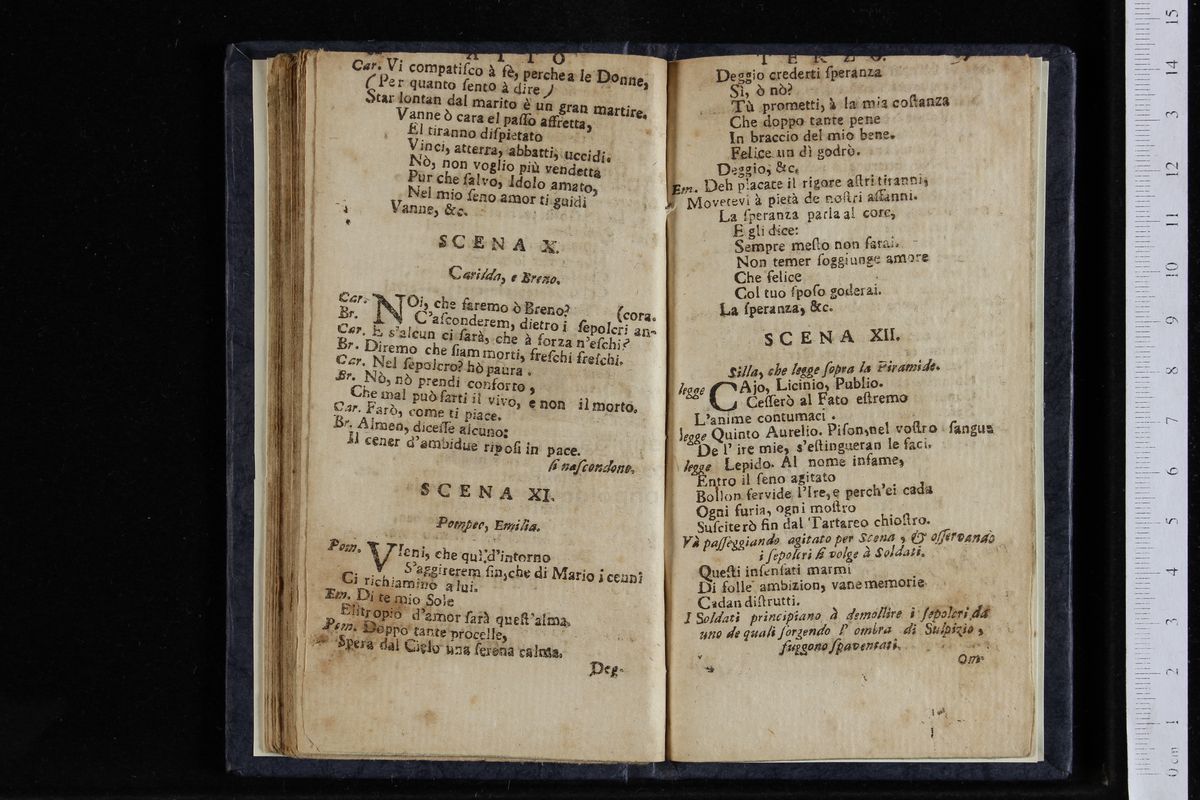 ATTO
Car. Vi compatiſco à fè, perche a le Donne,
(Per quanto ſento à dire)
Star lontan dal marito è un gran martire.
Vanne ò cara el paſſo affretta,
El tiranno diſpietato
Vinci, atterra, abbatti, uccidi.
Nò, non voglio più vendetta
Pur che ſalvo, Idolo amato,
Nel mio ſeno amor ti guidi
Vanne, &c.
SCENA X.
Carilda, e Breno.
Car. NOi, che faremo ò Breno? (cora.
Br. C'aſconderem, dietro i ſepolcri an-
Car. E s'alcun ci farà, che à forza n'eſchi?
Br. Diremo che ſiam morti, freſchi freſchi.
Car. Nel ſepolcro? hò paura.
Br. Nò, nò prendi conforto,
Che mal può farti il vivo, e non il morto.
Car. Farò, come ti piace.
Br. Almen, diceſſe alcuno:
Il cener d'ambidue ripoſi in pace.
ſi naſcondono.
SCENA XI.
Pompeo, Emilia.
Pom. VIeni, che quì d'intorno
S'aggirerem ſin, che di Mario i cenni
Ci richiamino a lui.
Em. Di te mio Sole
Elitropio d'amor ſarà queſt'alma,
Pom. Doppo tante procelle,
Spera dal Cielo una ſerena calma.
Deg-
TERZO.
Deggio crederti ſperanza
Sì, ò nò?
Tù prometti, à la mia coſtanza
Che doppo tante pene
In braccio del mio bene.
Felice un dì godrò.
Deggio, &c.
Em. Deh placate il rigore aſtri tiranni,
Movetevi à pietà de noſtri affanni.
La ſperanza parla al core,
E gli dice:
Sempre meſto non ſarai.
Non temer ſoggiunge amore
Che felice
Col tuo ſpoſo goderai.
La ſperanza, &c.
SCENA XII.
Silla, che legge ſopra la Piramide.
legge CAjo, Licinio, Publio.
Ceſſerò al Fato eſtremo
L'anime contumaci.
legge Quinto Aurelio. Piſon, nel voſtro ſangue
De l'ire mie, s'eſtingueran le faci.
legge Lepido. Al nome infame,
Entro il ſeno agitato
Bollon fervide l'Ire, e perch'ei cada
Ogni furia, ogni moſtro
Suſciterò fin dal Tartareo chioſtro.
Và paſſeggiando agitato per Scena, & oſſervando
i ſepolcri ſi volge à Soldati.
Queſti inſenſati marmi
Di folle ambizion, vane memorie
Cadan diſtrutti.
I Soldati principiano à demollire i ſepolcri da
uno de quali ſorgendo l'ombra di Sulpizio,
fuggono ſpaventati.
Om-
0 cm 1 2 3 4 5 6 7 8 9 10 11 12 3 14 15